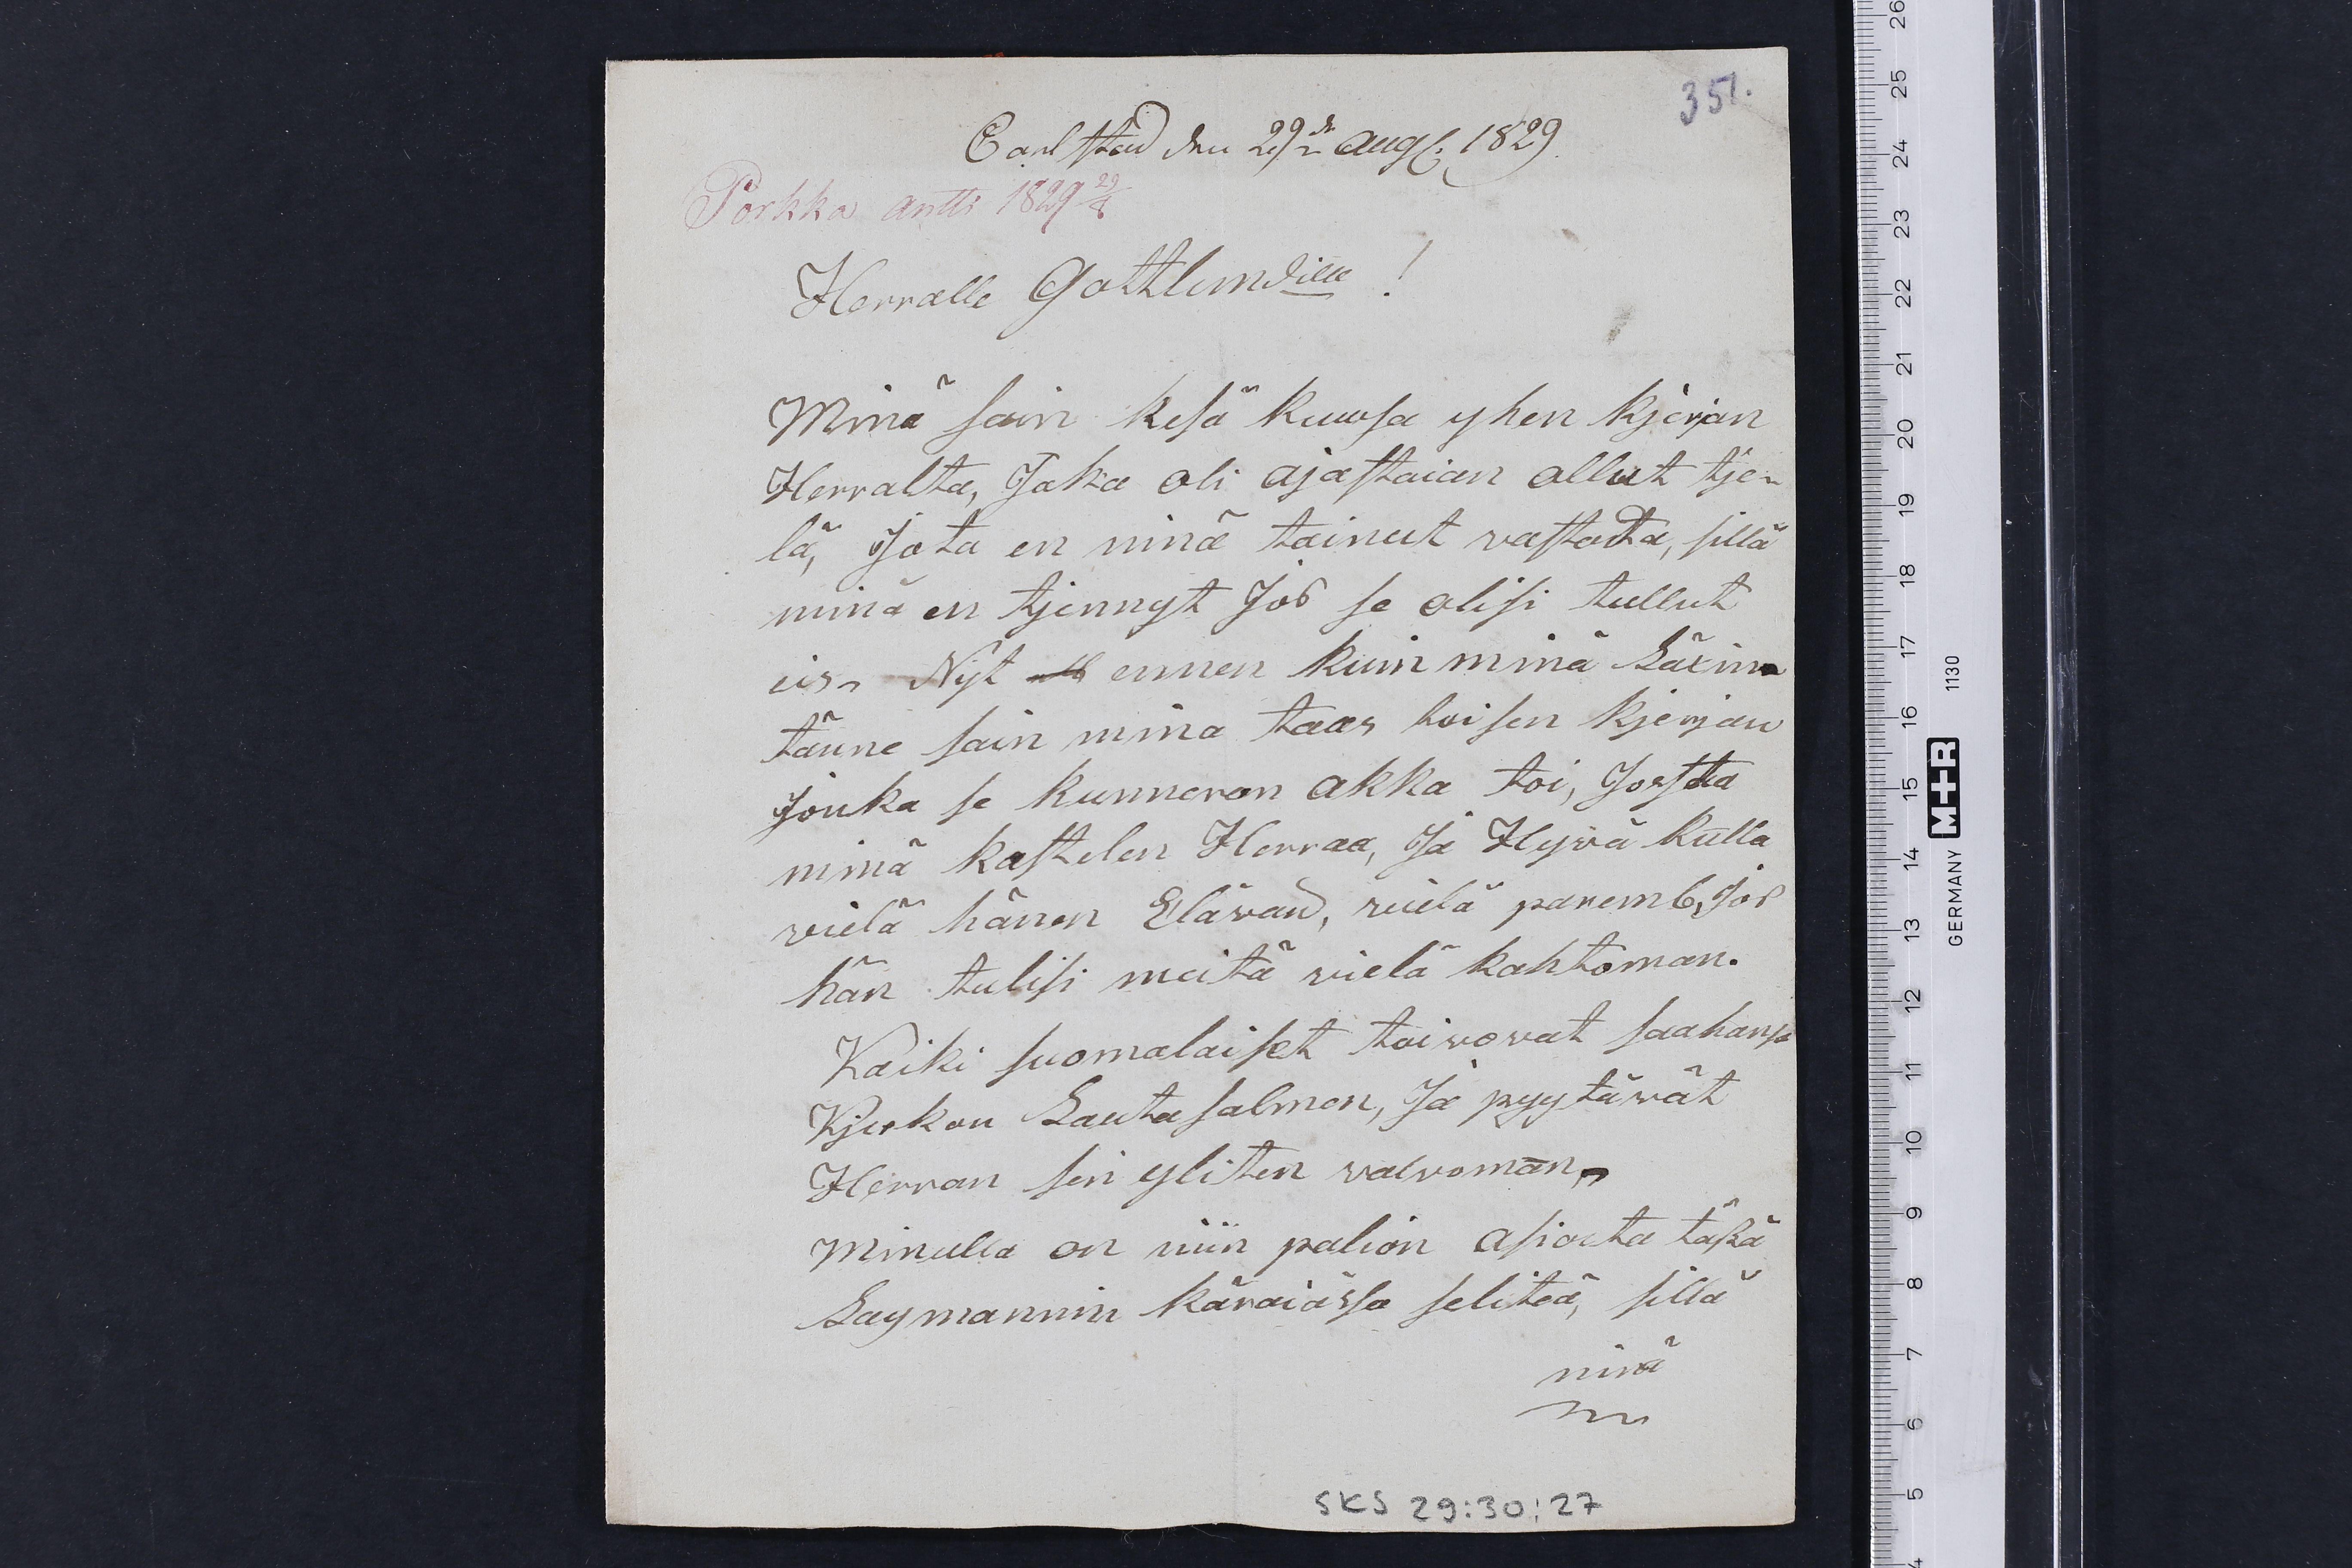 351.
Carlstad den 29de Aug. 1829
Porkka antti 1829 29/8
Herralle Gottlundille!
Minä sain kesä kuusa yhen kjerjan
Herralta, Joka oli ajastaian ollut tje-
lä, Jota en minä tainut vastata, sillä
minä en tjennyt Jos se olisi tullut
eis. Nyt ennen kuin minä Läxin
tänne sain minä taas toisen kjerjan
Jonka se kunneron akka toi, Jossta
minä kastelen Herraa, Ja Hyvä kulla
vielä hänen Elävän, vielä paremb, Jos
hän tulisi meitä vielä kahtoman.
Kaiki suomalaiset toivovat saahansa
Kjerkon Lautasalmen, Ja pyytävät
Herran sen yliten valvoman,
Minulla on niin palion asioita täsä
Lagmannin käraiässä seliteä, sillä
minä
SKS 29:30:27
GERMANY M+R 1130
26
25
24
23
22
21
20
19
18
17
16
15
14
13
12
11
10
9
8
7
6
5
4